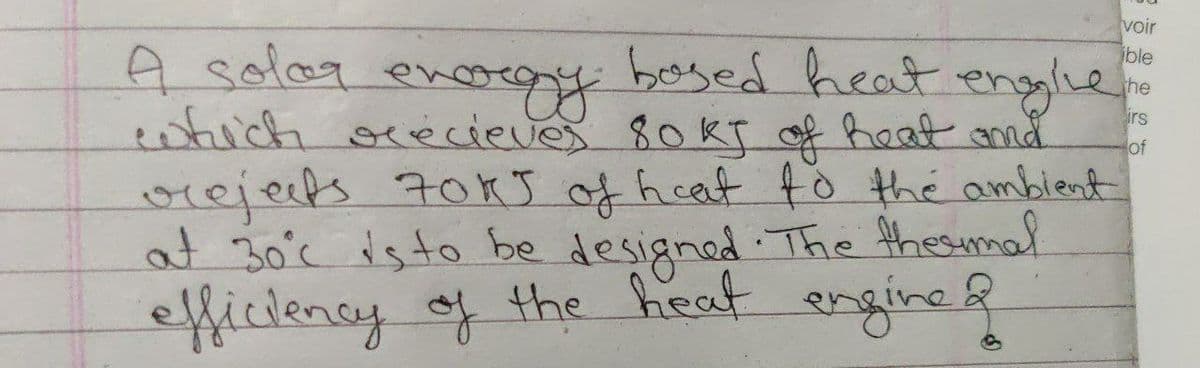 A solar energy based heat engine
which recieves 80 KJ of heat and
rejects 70KJ of heat to the ambient
at 30°c is to be designed. The thermal
efficiency of the heat engine?
voir
ible
he
irs
of